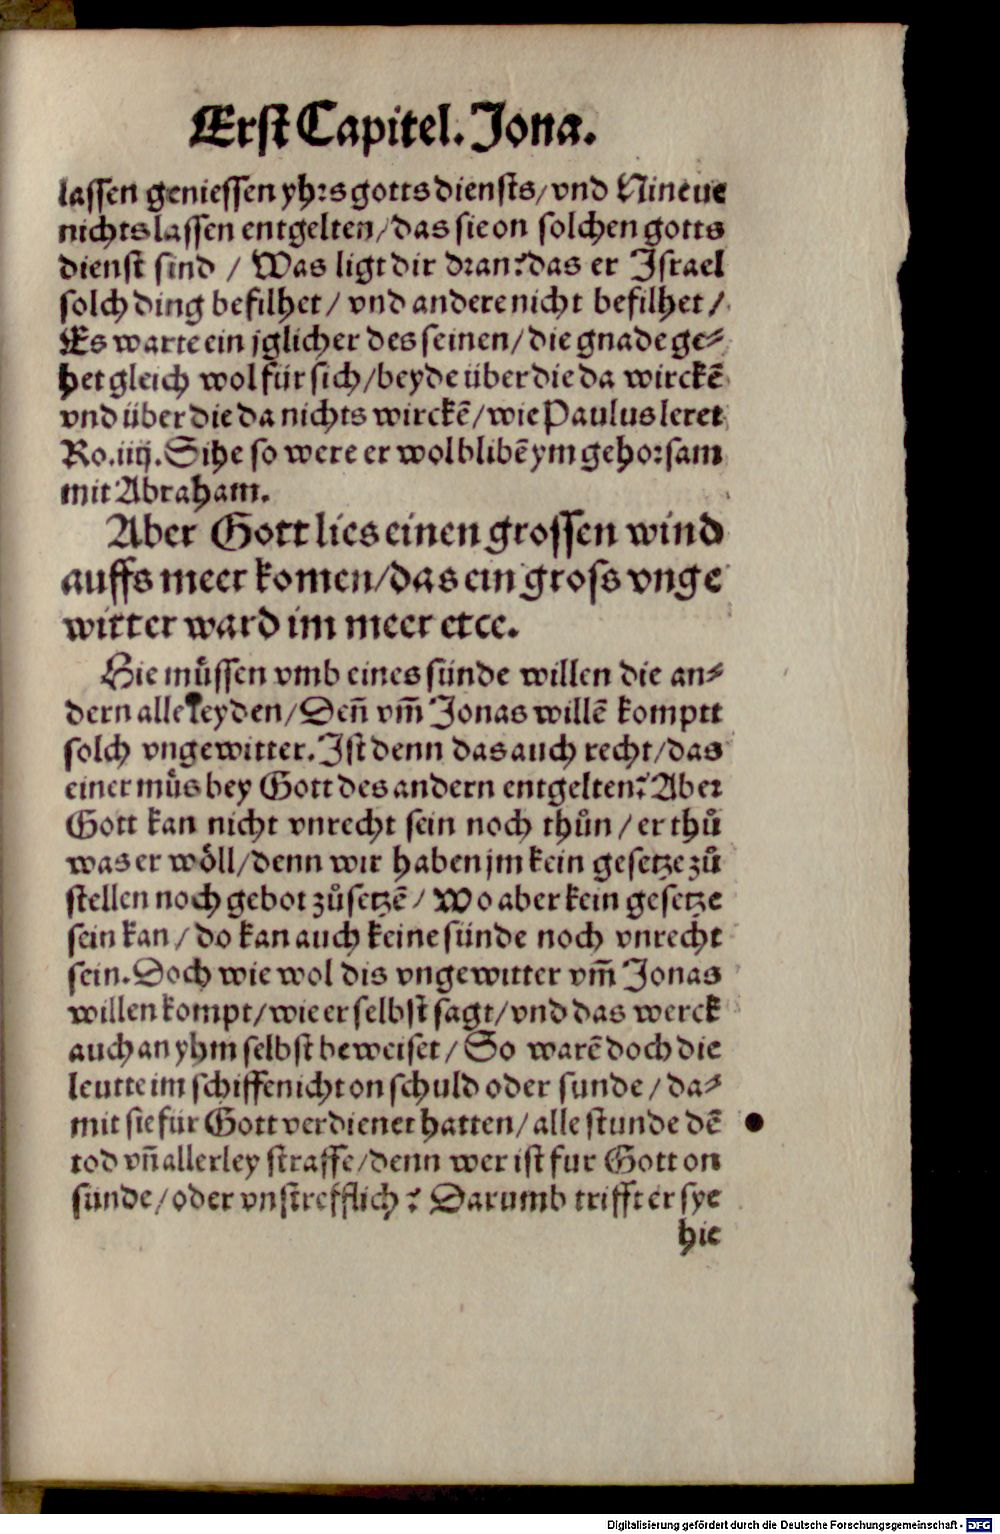 Erst Capitel. Jona.
lassen geniessen yhrs gotts diensts/ vnd Nineue
nichts lassen entgelten/ das sie on solchen gotts
dienst sind / Was ligt dir dran? das er Israel
solch ding befilhet/ vnd andere nicht befilhet/
Es warte ein jglicher des seinen/ die gnade ge⸗
het gleich wol für sich/ beyde über die da wirckē
vnd über die da nichts wirckē/ wie Paulus leret
Ro. iiij. Sihe so were er wol blibē ym gehorsam
mit Abraham.
Aber Gott lies einen grossen wind
auffs meer komen/ das ein gross vnge
witter ward im meer etce.
Hie müssen vmb eines sünde willen die an⸗
dern alle leyden/ Deñ vm̃ Jonas willē komptt
solch vngewitter. Ist denn das auch recht/ das
einer můs bey Gott des andern entgelten? Aber
Gott kan nicht vnrecht sein noch thůn / er thů
was er wöll/ denn wir haben jm kein gesetze zů
stellen noch gebot zů setzē / Wo aber kein gesetze
sein kan / do kan auch keine sünde noch vnrecht
sein. Doch wie wol dis vngewitter vm̃ Jonas
willen kompt/ wie er selbst sagt/ vnd das werck
auch an yhm selbst beweiset / So warē doch die
leutte im schiffe nicht on schuld oder sunde / da⸗
mit sie für Gott verdienet hatten/ alle stunde dē
tod vñ allerley straffe/ denn wer ist fur Gott on
sünde/ oder vnstrefflich? Darumb trifft er sye
hie
Digitalisierung gefördert durch die Deutsche Forschungsgemeinschaft - DFG